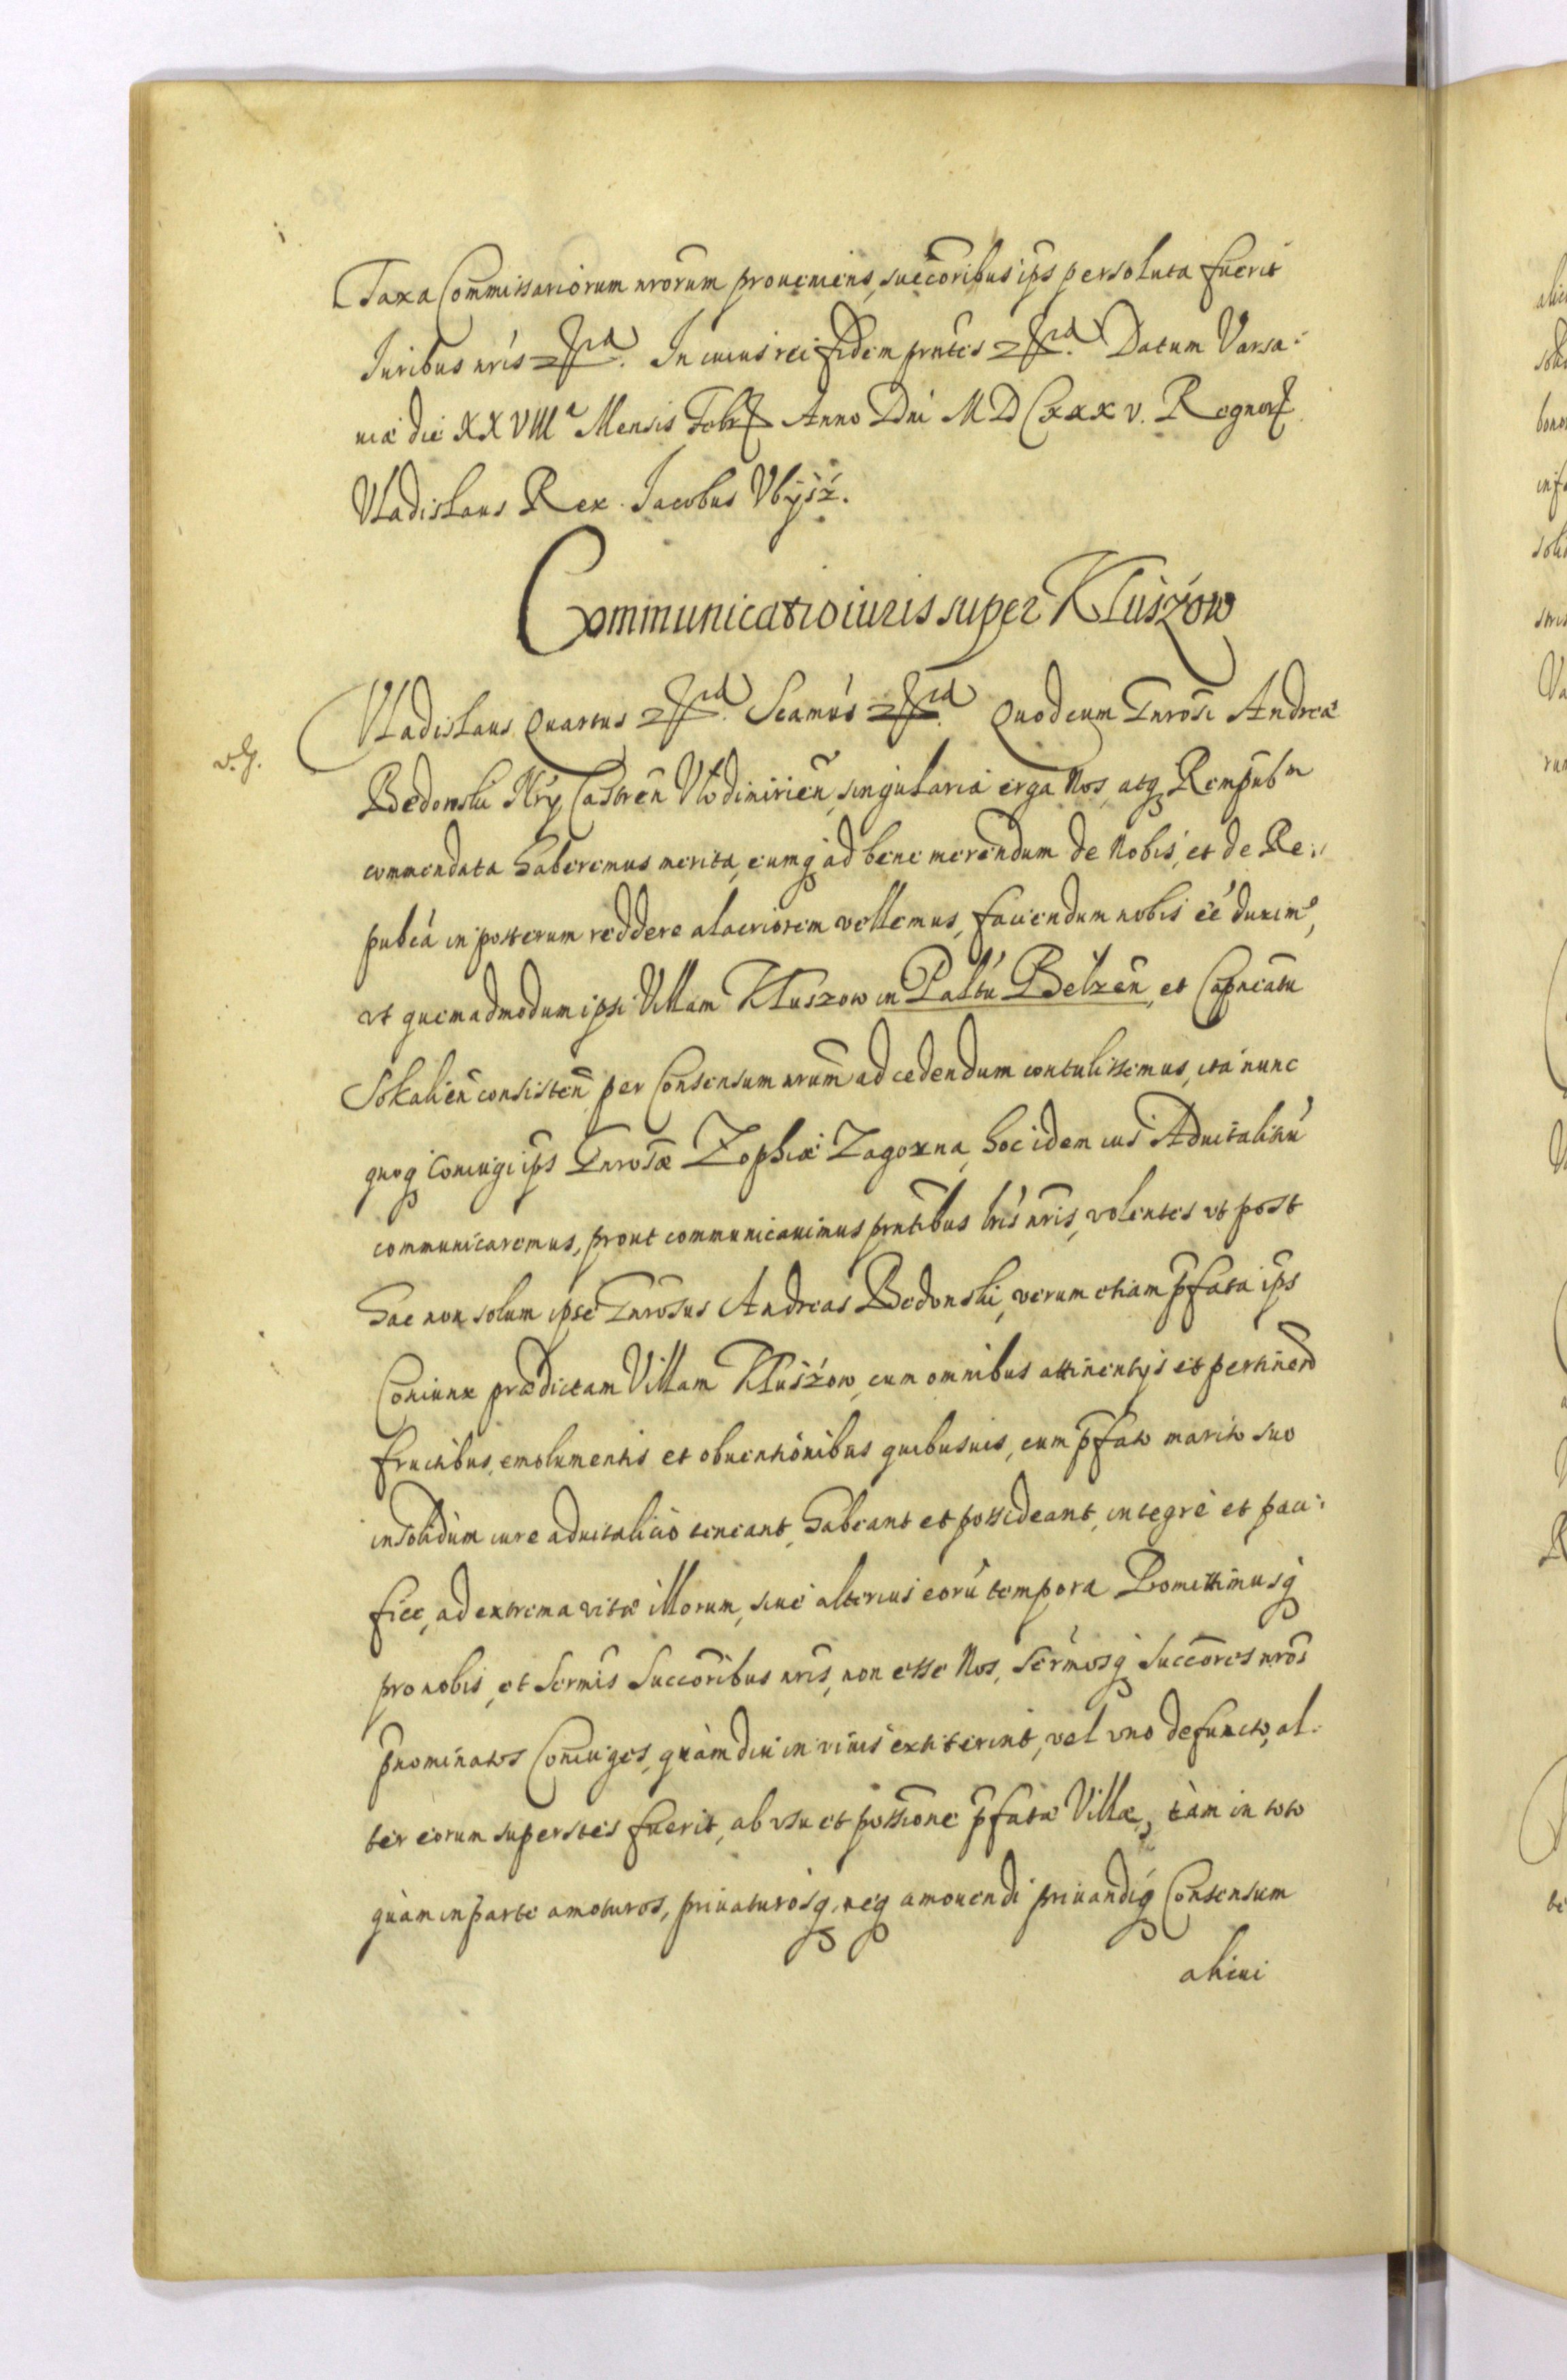 Taxa Commissariorum nrorum proueniens, succoribus ips persoluta fuerit
Juribus nris etc. In cuius rei fidem pntes etc. Datum Varsa-
uiæ die XXVIIIa Mensis Febr Anno Dni MDCxxxv. Regnor
Vladislaus Rex. Jacobus Vbysz.
Communicatio iuris super Kłuszow
v. g.
Vladislaus Quartus etc. Seamus etc. Quod cum Gnrosi Andreæ
Bedonski Nry Castren Vlodimirien, singularia erga Nos, atq Rempubm
commendata haberemus merita, eumq ad bene merendum de Nobis, et de Re-
pubca in posterum reddere alacriorem vellemus, faciendum nobis ee duximo,
vt quemadmodum ipsi Villam Kłuszow in Paltu Belzen, et Capneatu
Sokalien consisten, per Consensum nrum ad cedendum contulissemus, ita nunc
quoq Coniugi ips Gnrosæ Zophiæ hoc idem ius Aduitalitiu
communicaremus, prout communicauimus pntibus lris nris, volentes vt post
hac non solum ipse Gnrosus Andreas Bedonski, verum etiam pfata ips
Coniunx prædictam Villam Kłuszow, cum omnibus attinentijs et pertinen
fructibus, emolumentis et obuentionibus quibusuis, cum pfato marito suo
in solidum iure aduitalicio teneant, habeant et possideant, integre et paci-
fice, ad extrema vitæ illorum, siue alterius eoru tempora Promittimusq
pro nobis, et Sermis Succoribus nris, non esse Nos, Sermosq Succores nros
pnominatos Coniuges, quàm diu in viuis extiterint, vel vno defuncto, al-
ter eorum superstes fuerit, ab vsu et possione pfatæ Villæ, tàm in toto
quàm in parte amoturos, priuaturosq, neq amouendi priuandiq Consensum
alicui